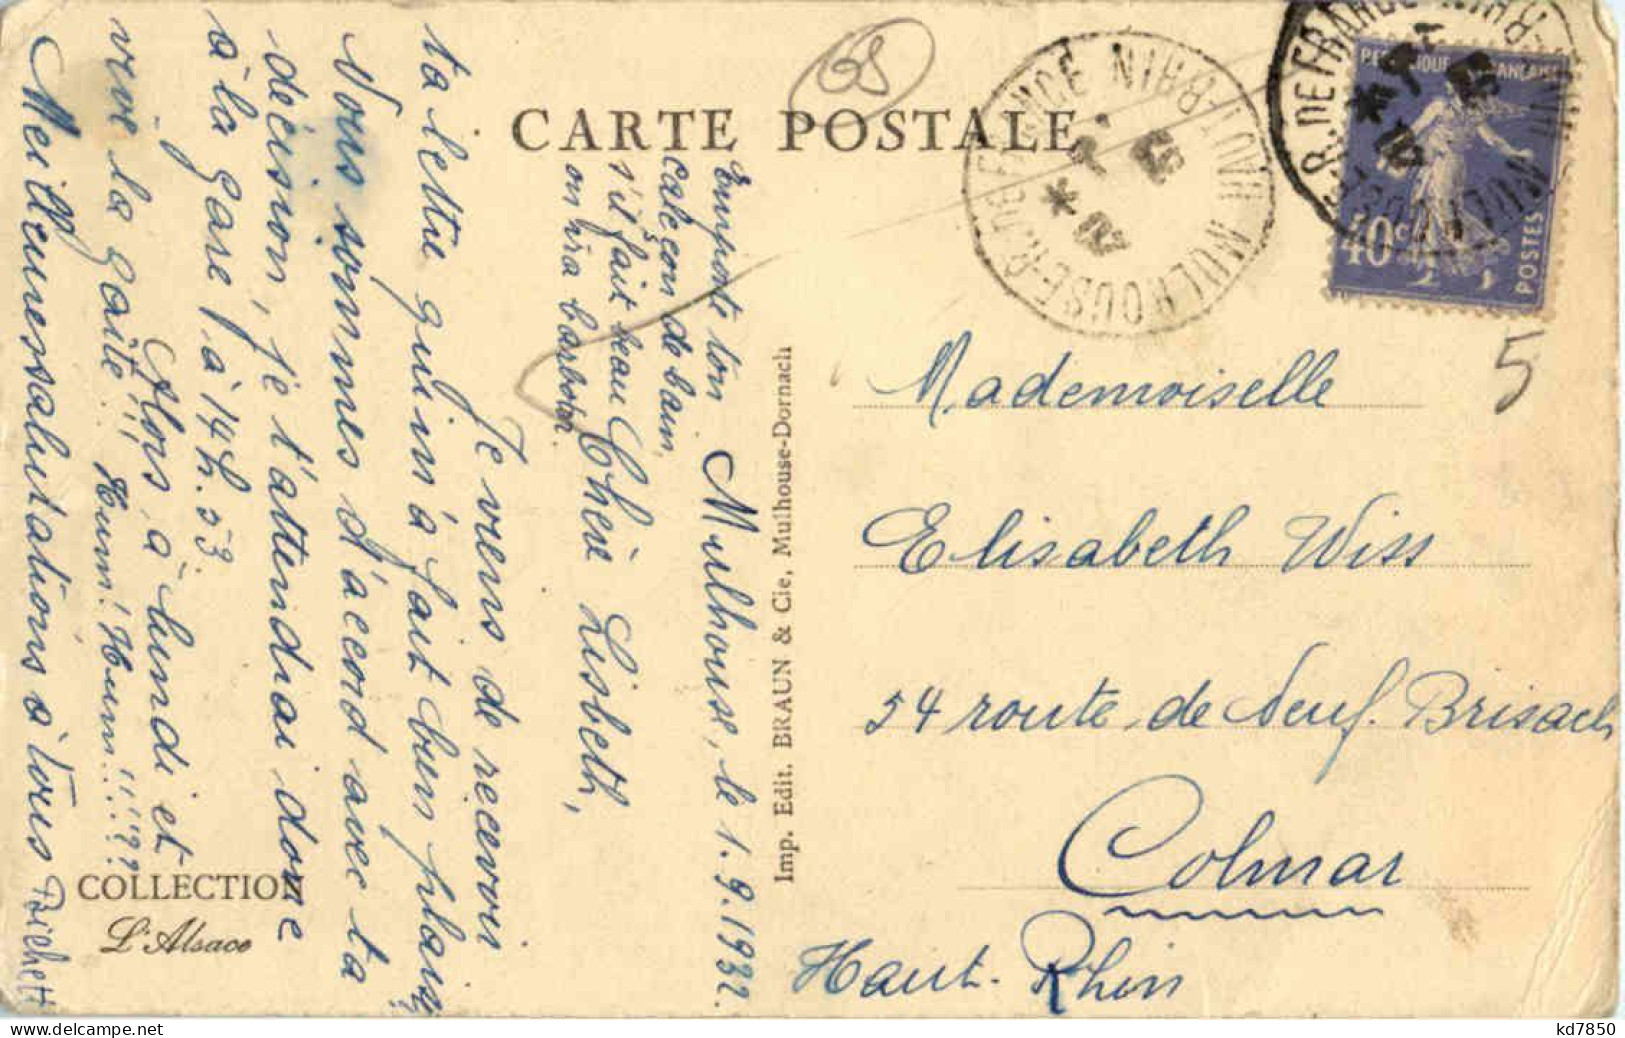 CARTE POSTALE
68
RÉPUBLIQUE FRANÇAISE
40c
POSTES
MULHOUSE-R. DE FRANCE HAUT-RHIN
5
Mademoiselle
Elisabeth Wiss
54 route de Neuf-Brisach
Colmar
Haut-Rhin
Imp. Edit. BRAUN & Cie, Mulhouse-Dornach
Mulhouse, le 1.9.1932.
Emporte ton
caleçon de bain,
s'il fait beau
on ira barboter.
Chère Lisbeth,
Je viens de recevoir
ta lettre qui m'a fait bien plaisir
Nous sommes d'accord avec ta
décision, je t'attendrai donc
à la gare à 14h.53.
Alors à lundi et
vive la gaîté!!!
Hum! Hum!!!??
Meilleures salutations à tous
COLLECTION
L'Alsace
delcampe.net
kd7850